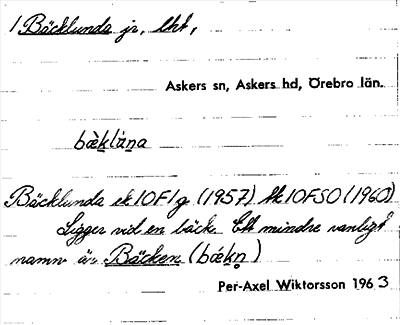 1 Bäcklunda jr, lht,
Askers sn, Askers hd, Örebro län.
bæ̀klùna
Bäcklunda ek 10F1g (1957) tk 10FSO (1960)
Ligger vid en bäck. Ett mindre vanligt
namn är Bäcken (bǽkn̥)
Per-Axel Wiktorsson 1963